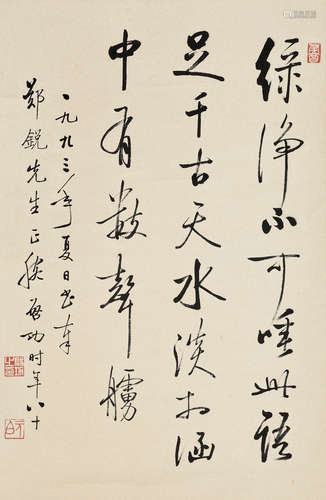 綠淨不可唾此語
足千古天水淡相涵
中有數聲艣
一九九三年夏日書奉
鄭銳先生正腕啓功时年八十